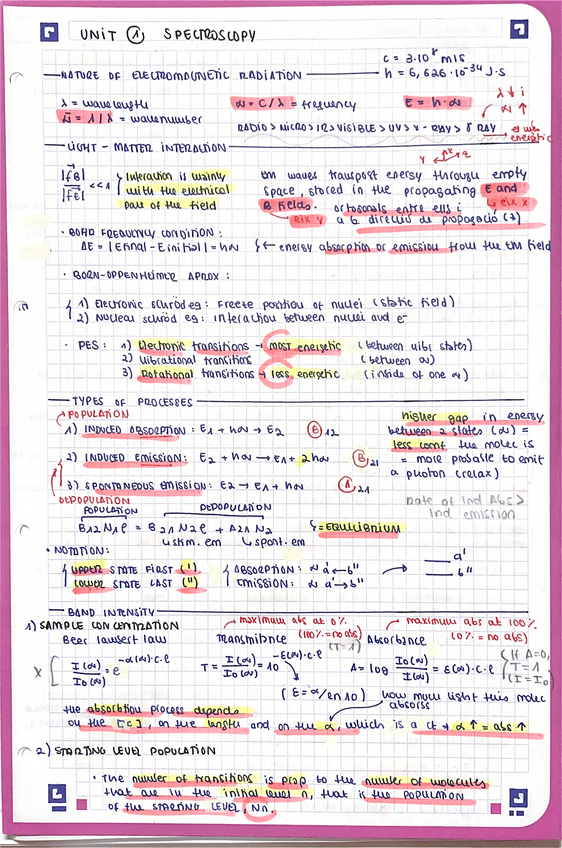 UNIT 1 SPECTROSCOPY
c = 3·10⁸ m/s
NATURE OF ELECTROMAGNETIC RADIATION
h = 6,626·10⁻³⁴ J·s
λ = wavelength
ν = c/λ = frequency
E = h·ν
λ ↓ i
ν ↑
ν̄ = 1/λ = wavenumber
RADIO > MICRO > IR > VISIBLE > UV > X-RAY > γ RAY
el més energètic
LIGHT - MATTER INTERACTION
|fB|/|fE| <<1
Interaction is mainly
with the electrical
part of the field
em waves transport energy through empty
space, stored in the propagating E and
B fields. ortogonals entre ells i
eix x
eix y
a la direcció de propagació (z)
· BOHR FREQUENCY CONDITION:
ΔE = |Efinal - Einitial| = hν
energy absorption or emission from the EM field
· BORN-OPPENHEIMER APROX:
1) Electronic schröd eq: Freeze position of nuclei (static field)
2) Nuclear schröd eq: interaction between nuclei and e⁻
· PES: 1) Electronic transitions → most energetic (between vibr states)
2) Vibrational transitions (between ν)
3) Rotational transitions → less energetic (inside of one ν)
TYPES OF PROCESSES
POPULATION
1) INDUCED ABSORPTION: E1 + hν → E2 B12
2) INDUCED EMISSION: E2 + hν → E1 + 2hν B21
3) SPONTANEOUS EMISSION: E2 → E1 + hν A21
DEPOPULATION
higher gap in energy
between 2 states (ν) =
less cont the molec is
= more probable to emit
a photon (relax)
Rate of Ind Abs >
Ind emission
POPULATION DEPOPULATION
B12N1ρ = B21N2ρ + A21N2 = EQUILIBRIUM
stim. em spont. em
· NOTATION:
UPPER STATE FIRST (')
LOWER STATE LAST (")
ABSORPTION: ν a' ← b"
EMISSION: ν a' → b"
a'
b"
BAND INTENSITY
1) SAMPLE CONCENTRATION
maximum abs at 0%
(100% = no abs)
maximum abs at 100%
(0% = no abs)
Beer lambert law
Transmitance (T=1)
Absorbance
(If A=0,
T=1
(I=I0)
I(ν)/I0(ν) = e^-α(ν)·c·l
T = I(ν)/I0(ν) = 10^-ε(ν)·c·l
A = log I0(ν)/I(ν) = ε(ν)·c·l
(ε = α/ln10)
how much light this molec
absorbs
the absorbtion process depends
on the [c], on the length and on the α, which is a ct → α ↑ = abs ↑
2) STARTING LEVEL POPULATION
· The number of transitions is prop to the number of molecules
that are in the initial level n, that is the POPULATION
of the STARTING LEVEL, Nn.